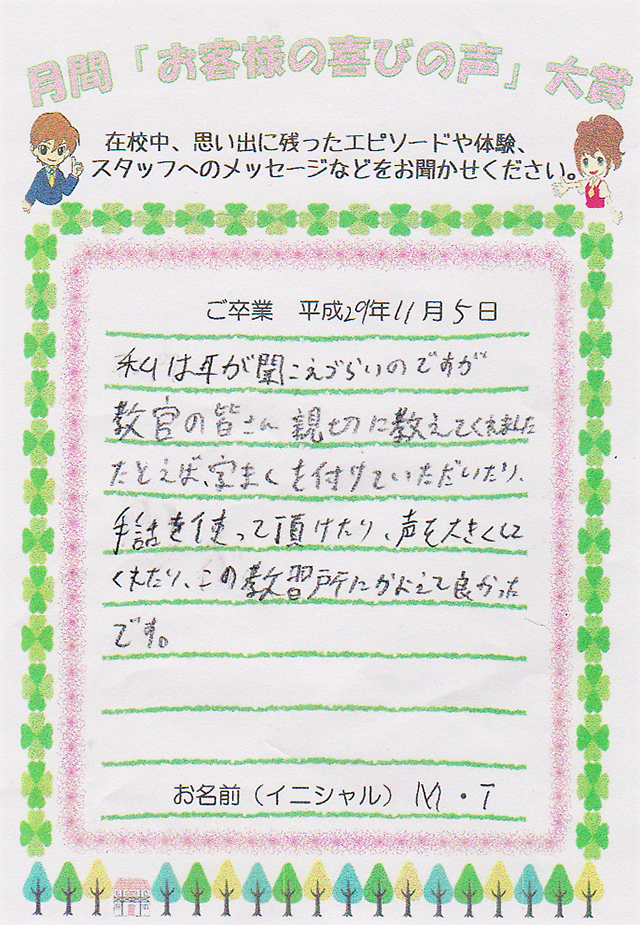 月間「お客様の喜びの声」大賞
在校中、思い出に残ったエピソードや体験、
スタッフへのメッセージなどをお聞かせください。
ご卒業 平成29年11月5日
私は耳が聞こえづらいのですが
教官の皆さん親切に教えてくれました
たとえば、字まくを付けていただいたり、
手話を使って頂けたり、声を大きくして
くれたり、この教習所にかよえて良かった
です。
お名前（イニシャル） M・T